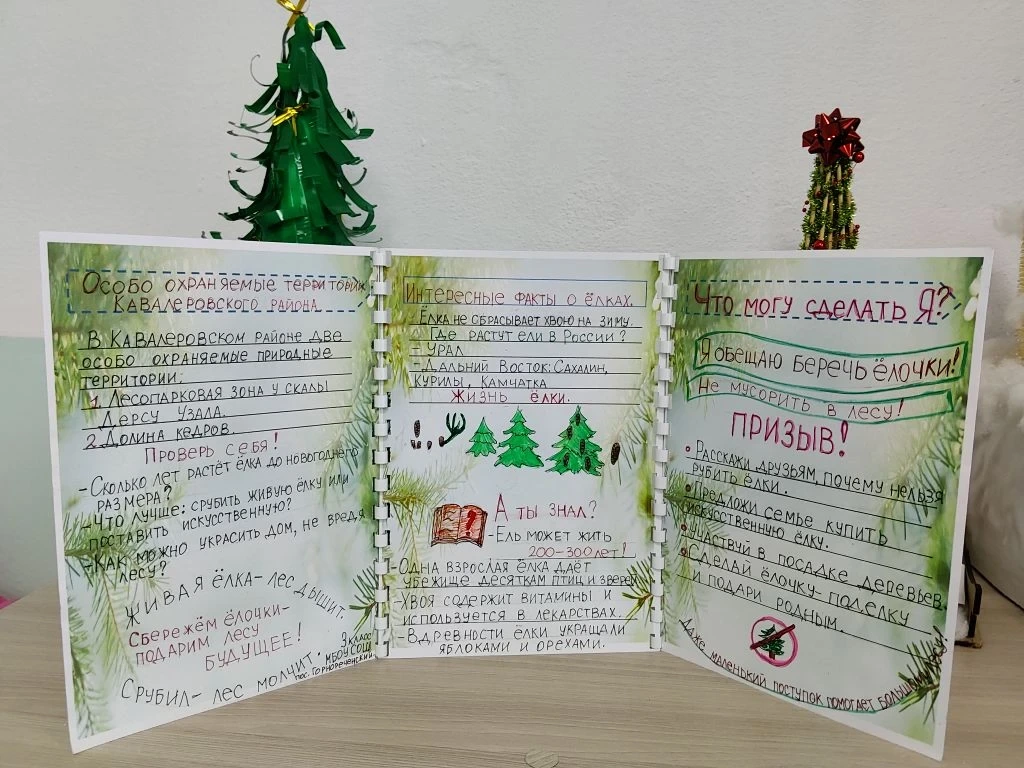 Особо охраняемые территории
Кавалеровского района.
В Кавалеровском районе две
особо охраняемые природные
территории:
1. Лесопарковая зона у скалы
Дерсу Узала.
2. Долина кедров.
Проверь себя!
-Сколько лет растёт ёлка до новогоднего
размера?
-Что лучше: срубить живую ёлку или
поставить искусственную?
-Как можно украсить дом, не вредя
лесу?
Живая ёлка-лес дышит,
Сбережём ёлочки-
подарим лесу
будущее!
Срубил- лес молчит.
9 класс
МБОУ СОШ
пос. Горнореченский
Интересные факты о ёлках.
- Ёлка не сбрасывает хвою на зиму.
- Где растут ели в России?
- Урал
- Дальний Восток: Сахалин,
Курилы, Камчатка
Жизнь ёлки.
А ты знал?
-Ель может жить
200-300 лет!
-Одна взрослая ёлка даёт
убежище десяткам птиц и зверей
-Хвоя содержит витамины и
используется в лекарствах.
-В древности ёлки украшали
яблоками и орехами.
Что могу сделать Я?
Я обещаю беречь ёлочки!
Не мусорить в лесу!
ПРИЗЫВ!
• Расскажи друзьям, почему нельзя
рубить ёлки.
• Предложи семье купить
искусственную ёлку.
• Участвуй в посадке деревьев.
• Сделай ёлочку-поделку
и подари родным.
Даже маленький поступок помогает большому